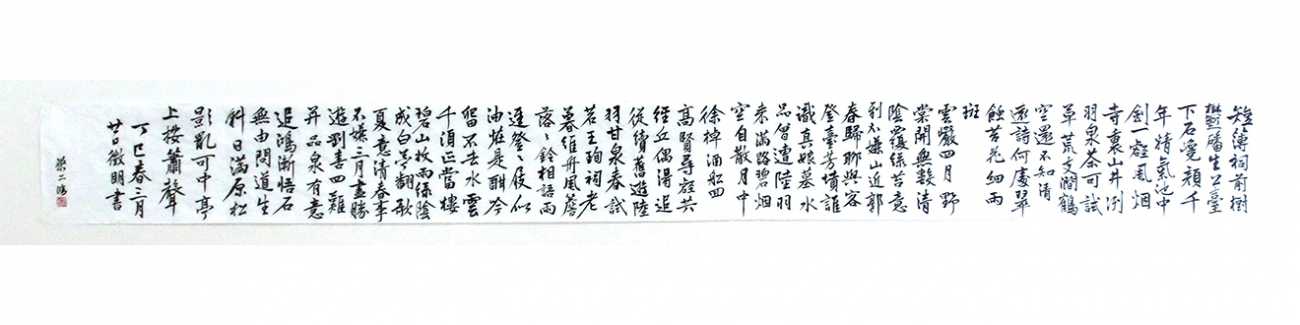 短薄祠前樹
鬱蟠生公臺
下石覺頑千
年精氣池中
劍一壑風烟
寺裏山井冽
羽泉茶可試
草荒支澗鶴
空還不知清
遠詩何處翠
蝕苔花細雨
斑
雲巖四月野
棠開無數清
陰覆綠苔意
到不嫌山近郭
春歸聊與客
登臺芳墳誰
識真娘墓水
品曾遭陸羽
來滿路碧烟
空自散月中
徐棹酒船回
高賢尋壑共
經丘偶得追
從續舊遊陸
羽甘泉春試
茗王珣祠老
暮維舟風簷
落〻鈴相語雨
逕登〻屐似
油莊是酣今
留不去水雲
千頃正當樓
碧山枚雨綠陰
成白苧翻歌
夏意清春事
不嫌三月盡勝
遊剛喜四難
并品泉有意
追鴻漸悟石
無由問道生
斜日滿原松
影亂可中亭
上按簫聲
丁巳春三月
廿日徵明書